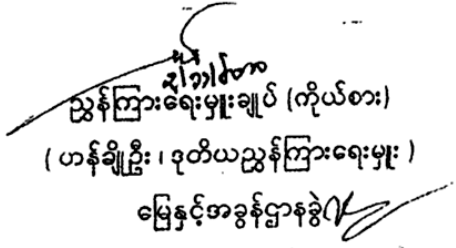 ညွှန်ကြားရေးမှူးချုပ် (ကိုယ်စား)
( ဟန်ချိုဦး ၊ ဒုတိယညွှန်ကြားရေးမှူး )
မြေနှင့်အခွန်ဌာနခွဲ